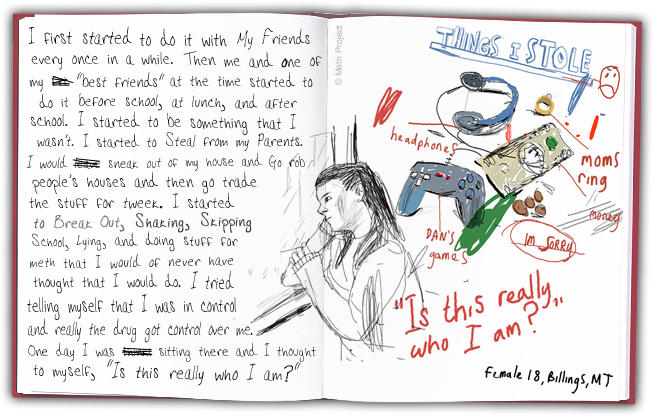 I first started to do it with My Friends
every once in a while. Then me and one of
my "best friends" at the time started to
do it before school, at lunch, and after
school. I started to be something that I
wasn't. I started to Steal from my Parents.
I would sneak out of my house and Go rob
people's houses and then go trade
the stuff for tweek. I started
to Break Out, Shaking, Skipping
School, Lying, and doing stuff for
meth that I would of never have
thought that I would do. I tried
telling myself that I was in control
and really the drug got control over me.
One day I was sitting there and I thought
to myself, "Is this really who I am?"
© Meth Project
THINGS I STOLE
headphones
moms
ring
money
DAN'S
games
Im SORRY
"Is this really
who I am?"
Female 18, Billings, MT